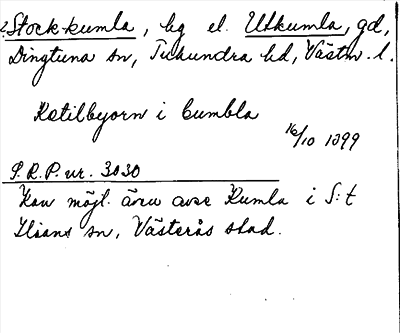 ?Stockkumla, by el. Utkumla, gd,
Dingtuna sn, Tuhundra hd, Västm. l.
Ketilbyorn i Cumbla
16/10 1399
S.R.P. nr. 3030
Kan möjl. även avse Kumla i S:t
Ilians sn, Västerås stad.